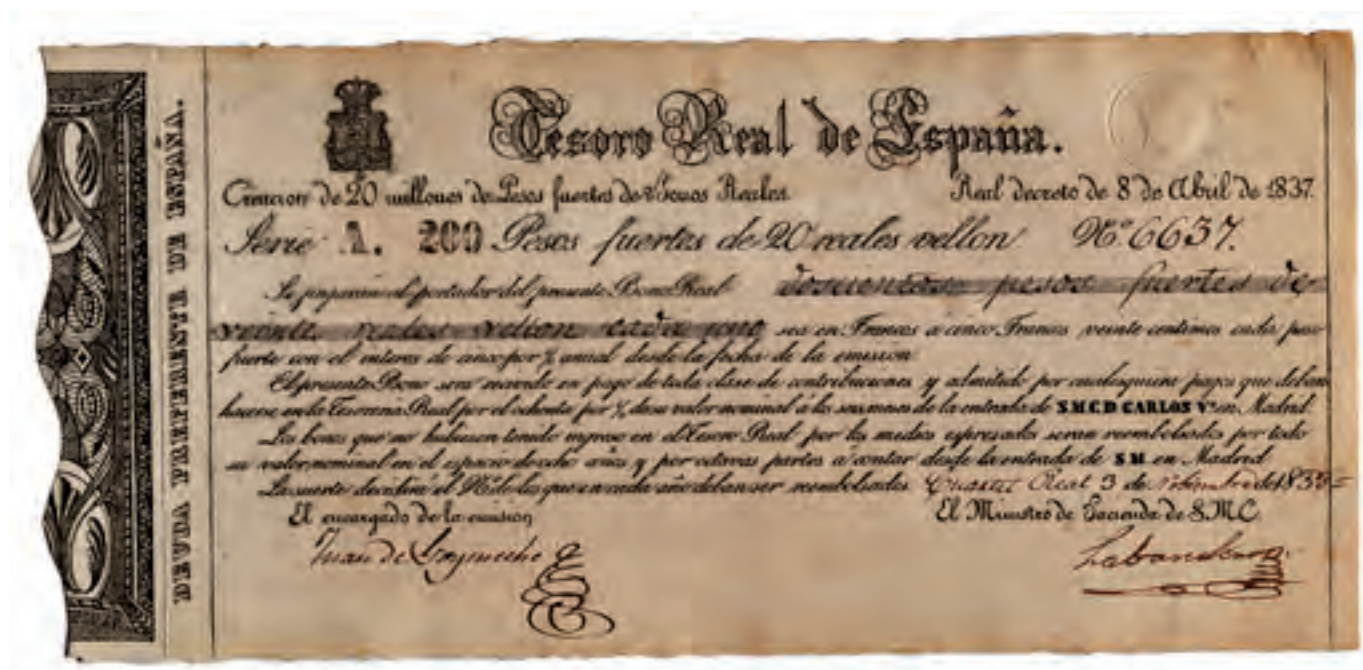 DEUDA PREFERENTE DE ESPAÑA.
Tesoro Real de España.
Creacion de 20 millones de Pesos fuertes de Bonos Reales. Real decreto de 8 de Abril de 1837.
Serie A. 200 Pesos fuertes de 20 reales vellon Nº 6637.
Se pagarán al portador del presente Bono Real doscientos pesos fuertes de
veinte reales vellon cada uno sea en Francos a cinco Francos veinte centimos cada peso
fuerte con el interes de cinco por % anual desde la fecha de la emision
El presente Bono sera recibido en pago de toda clase de contribuciones y admitido por cualesquiera pagos que deban
hacerse en la Tesoreria Real por el ochenta por % de su valor nominal á los seis meses de la entrada de S.M.C.D CARLOS Vº en Madrid.
Los bonos que no hubiesen tenido ingreso en el Tesoro Real por los medios espresados seran reembolsados por todo
su valor nominal en el espacio de ocho años y por octavas partes a contar desde la entrada de S M en Madrid
La suerte decidirá el Nº de los que en cada año deban ser reembolsados Cuartel Real 3 de de 183
El encargado de la emision El Ministro de Hacienda de S.M.C.
Juan de
Labandero